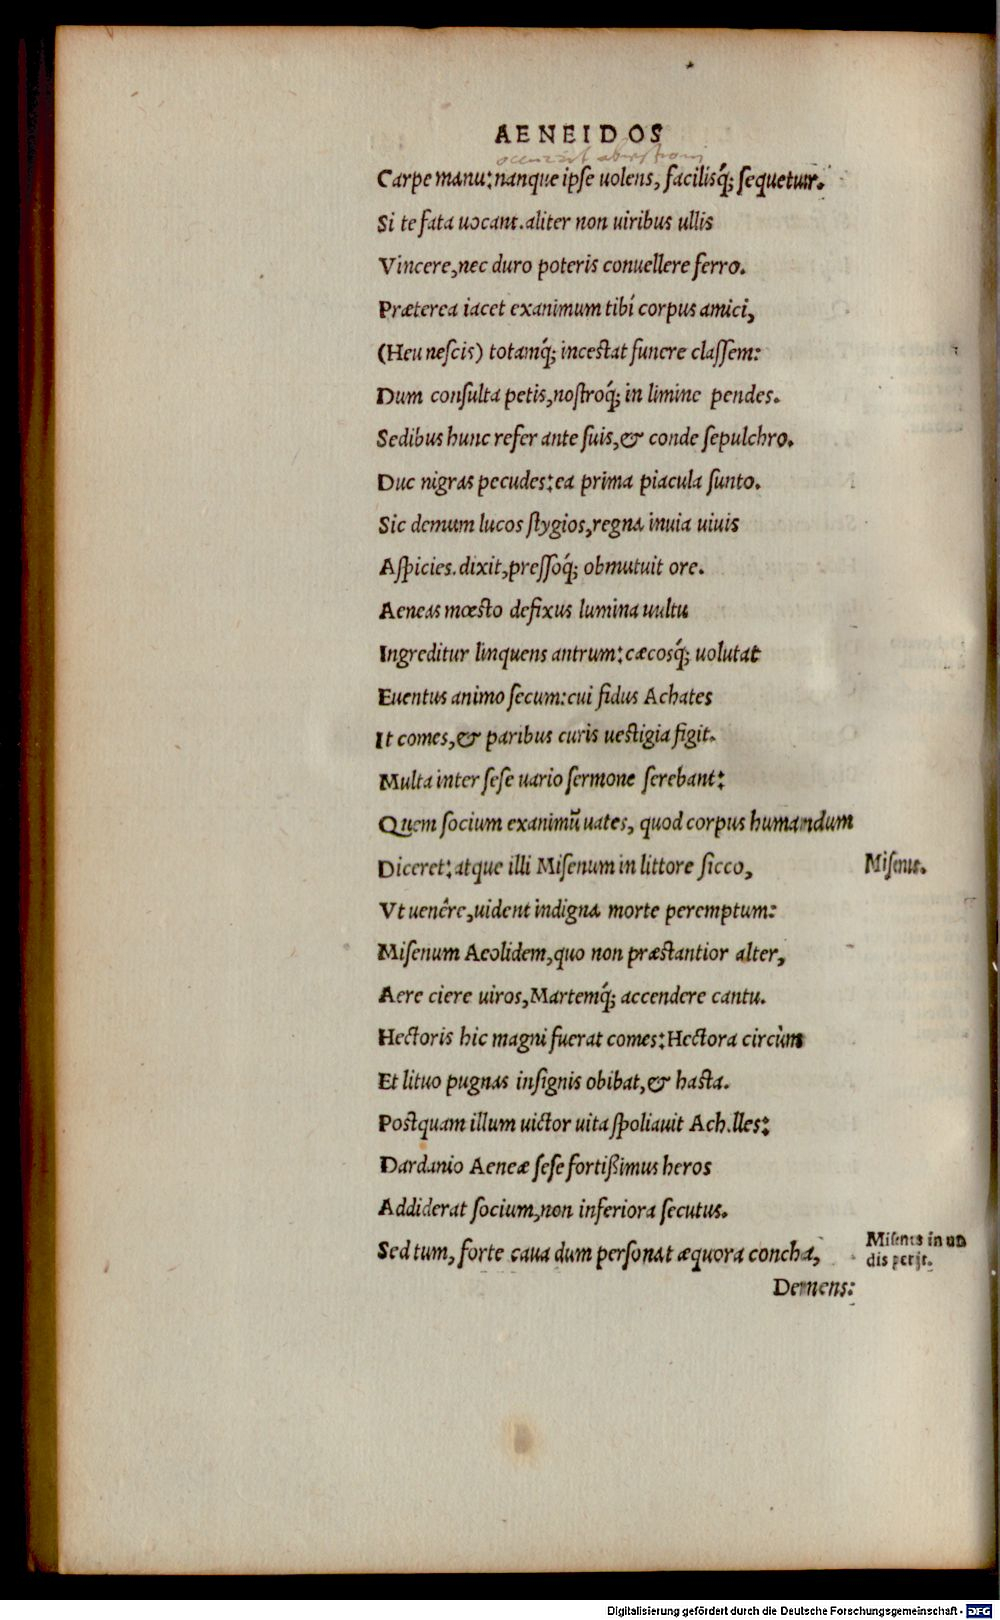 AENEIDOS
Carpe manu: nanque ipse uolens, facilisq́; sequetur.
Si te fata uocant. aliter non uiribus ullis
Vincere, nec duro poteris conuellere ferro.
Præterea iacet exanimum tibi corpus amici,
(Heu nescis) totamq́; incestat funere classem:
Dum consulta petis, nostroq́; in limine pendes.
Sedibus hunc refer ante suis, & conde sepulchro.
Duc nigras pecudes: ea prima piacula sunto.
Sic demum lucos stygios, regna inuia uiuis
Aspicies. dixit, pressoq́; obmutuit ore.
Aeneas mœsto defixus lumina uultu
Ingreditur linquens antrum: cæcosq́; uolutat
Euentus animo secum: cui fidus Achates
It comes, & paribus curis uestigia figit.
Multa inter sese uario sermone serebant:
Quem socium exanimū uates, quod corpus humandum
Diceret: atque illi Misenum in littore sicco,
Misenus.
Vt uenêre, uident indigna morte peremptum:
Misenum Aeolidem, quo non præstantior alter,
Aere ciere uiros, Martemq́; accendere cantu.
Hectoris hic magni fuerat comes: Hectora circùm
Et lituo pugnas insignis obibat, & hasta.
Postquam illum uictor uita spoliauit Ach.lles:
Dardanio Aeneæ sese fortißimus heros
Addiderat socium, non inferiora secutus.
Sed tum, forte caua dum personat æquora concha,
Misenus in un
dis perijt.
Demens:
Digitalisierung gefördert durch die Deutsche Forschungsgemeinschaft - DFG